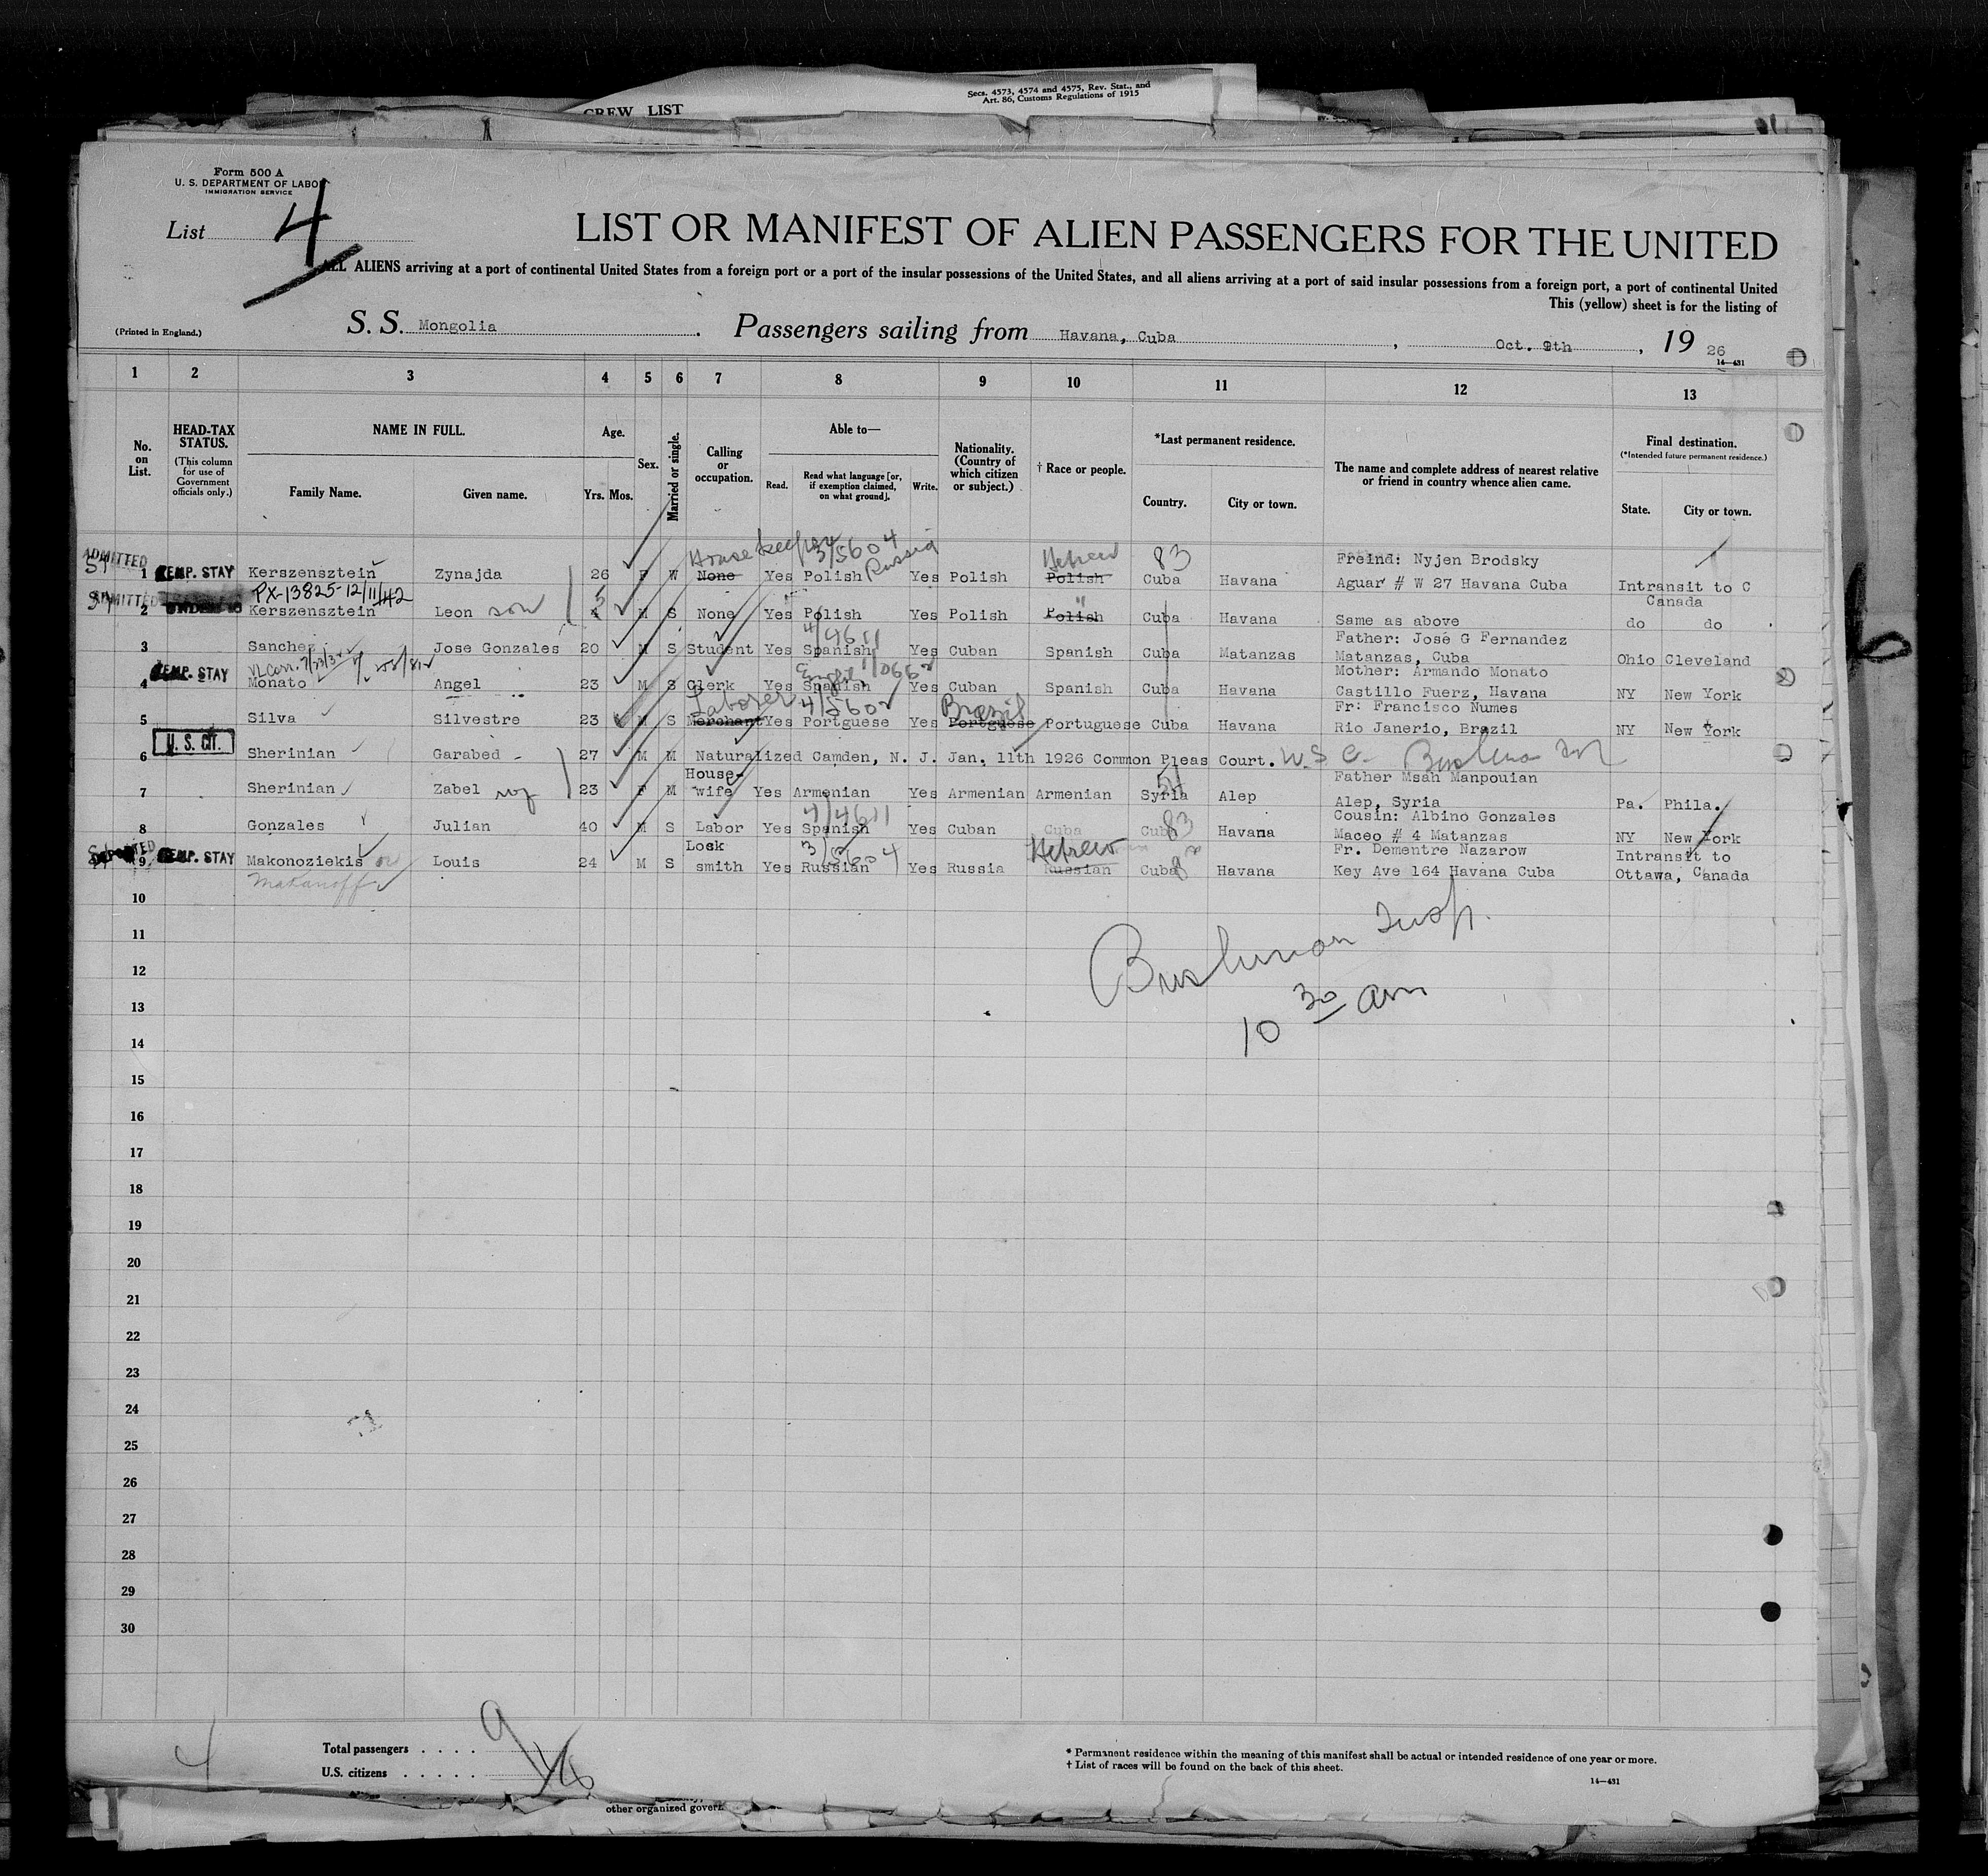 CREW LIST
Secs. 4573, 4574 and 4575, Rev. Stat., and
Art. 86, Customs Regulations of 1915
Form 500 A
U. S. DEPARTMENT OF LABOR
IMMIGRATION SERVICE
List 4
LIST OR MANIFEST OF ALIEN PASSENGERS FOR THE UNITED
ALL ALIENS arriving at a port of continental United States from a foreign port or a port of the insular possessions of the United States, and all aliens arriving at a port of said insular possessions from a foreign port, a port of continental United
This (yellow) sheet is for the listing of
(Printed in England.)
S. S. Mongolia . Passengers sailing from Havana, Cuba , Oct. 9th , 19 26
14—431
1 2 3 4 5 6 7 8 9 10 11 12 13
No. on List.
HEAD-TAX STATUS.
(This column for use of Government officials only.)
NAME IN FULL.
Family Name. Given name.
Age.
Yrs. Mos.
Sex.
Married or single.
Calling or occupation.
Able to—
Read. Read what language [or, if exemption claimed, on what ground]. Write.
Nationality. (Country of which citizen or subject.)
† Race or people.
*Last permanent residence.
Country. City or town.
The name and complete address of nearest relative or friend in country whence alien came.
Final destination.
(*Intended future permanent residence.)
State. City or town.
Housekeeper 3/5604 Russia Hebrew 83 Freind: Nyjen Brodsky
ADMITTED 1 TEMP. STAY Kerszensztein Zynajda 26 F W None Yes Polish Yes Polish Polish Cuba Havana Aguar # W 27 Havana Cuba Intransit to C
PX-13825-12/11/42 Canada
ADMITTED 2 UNDER 16 Kerszensztein Leon son M S None Yes Polish Yes Polish Polish Cuba Havana Same as above do do
4/4611 Father: José G Fernandez
3 Sanchez Jose Gonzales 20 M S Student Yes Spanish Yes Cuban Spanish Cuba Matanzas Matanzas, Cuba Ohio Cleveland
Mother: Armando Monato
TEMP. STAY 4 Monato Angel 23 M S Clerk Yes Spanish Yes Cuban Spanish Cuba Havana Castillo Fuerz, Havana NY New York
Laborer 4/5602 Brazil Fr: Francisco Numes
5 Silva Silvestre 23 M S Merchant Yes Portguese Yes Portuguese Portuguese Cuba Havana Rio Janerio, Brazil NY New York
U. S. CIT.
6 Sherinian Garabed 27 M M Naturalized Camden, N. J. Jan. 11th 1926 Common Pleas Court.
House- Father Msah Manpouian
7 Sherinian Zabel 23 F M wife Yes Armenian Yes Armenian Armenian Syria Alep Alep, Syria Pa. Phila.
4/4611 Cousin: Albino Gonzales
8 Gonzales Julian 40 M S Labor Yes Spanish Yes Cuban Cuba Cuba 83 Havana Maceo # 4 Matanzas NY New York
Losk 3/5604 Hebrew Fr. Dementre Nazarow Intransit to
DEPORTED 9 TEMP. STAY Makonoziekis or Louis 24 M S smith Yes Russian Yes Russia Russian Cuba Havana Key Ave 164 Havana Cuba Ottawa, Canada
Makanoff
10
11
Bushman Insp.
12
13
10 30 am
14
15
16
17
18
19
20
21
22
23
24
25
26
27
28
29
30
4
Total passengers . . . . 9
U.S. citizens . . . . .
* Permanent residence within the meaning of this manifest shall be actual or intended residence of one year or more.
† List of races will be found on the back of this sheet.
14—431
other organized govern